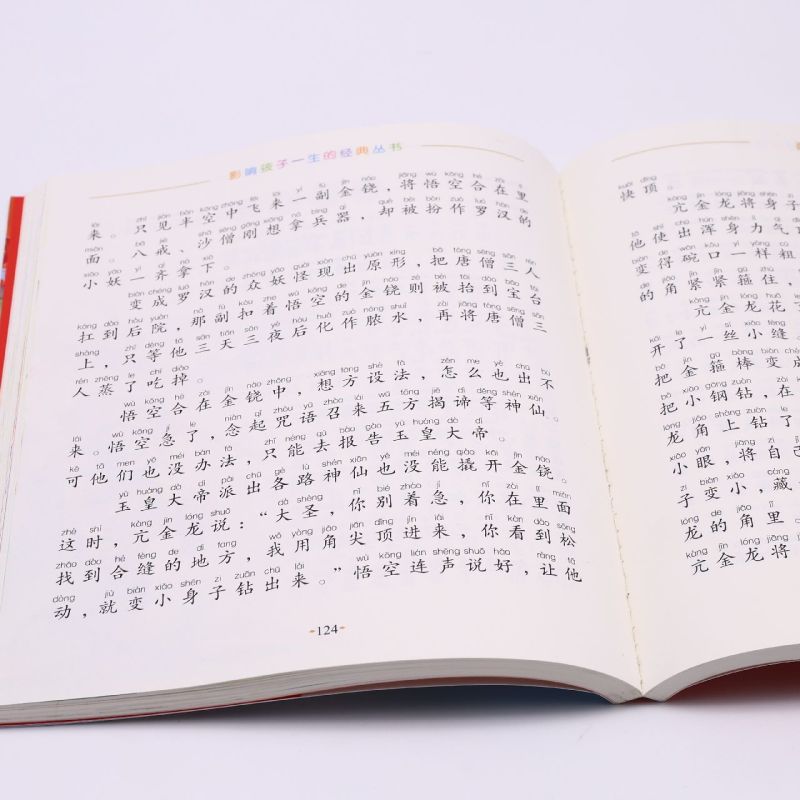 影响孩子一生的经典丛书
来。只见半空中飞来一副金铙，将悟空合在里
面。八戒、沙僧刚想拿兵器，却被扮作罗汉的
小妖一齐拿下。
变成罗汉的众妖怪现出原形，把唐僧三人
扛到后院，那副扣着悟空的金铙则被抬到宝台
上，只等他三天三夜后化作脓水，再将唐僧三
人蒸了吃掉。
悟空合在金铙中，想方设法，怎么也出不
来。悟空急了，念起咒语召来五方揭谛等神仙。
可他们也没办法，只能去报告玉皇大帝。
玉皇大帝派出各路神仙也没能撬开金铙。
这时，亢金龙说：“大圣，你别着急，你在里面
找到合缝的地方，我用角尖顶进来，你看到松
动，就变小身子钻出来。”悟空连声说好，让他
124
快顶。
亢金龙将身子
他使出浑身力气顶
变得碗口一样粗
的角紧紧箍住，
亢金龙花了
开了一丝小缝。
把金箍棒变成
把小钢钻，在
龙角上钻了
小眼，将自己
子变小，藏
龙的角里。
亢金龙将